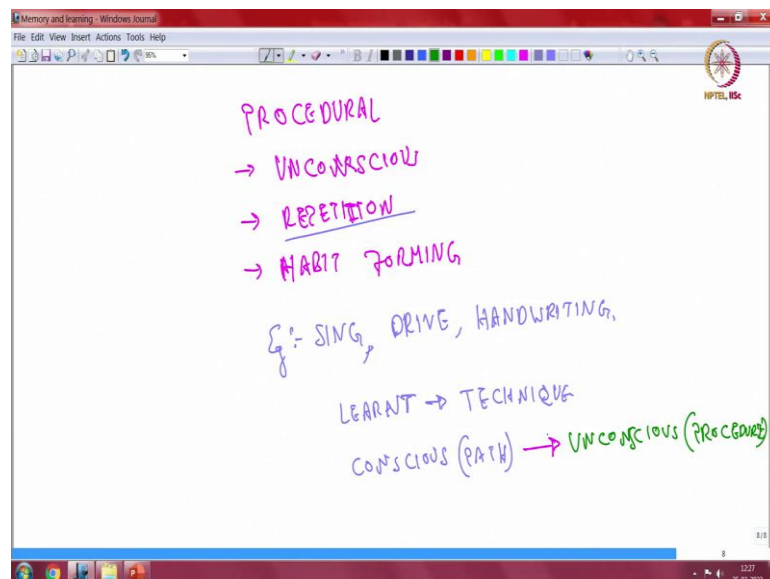 Memory and learning - Windows Journal
File Edit View Insert Actions Tools Help
95%
B I
NPTEL, IISc
PROCEDURAL
→ UNCONSCIOUS
→ REPETITION
→ HABIT FORMING
Eg:- SING, DRIVE, HANDWRITING.
LEARNT → TECHNIQUE
CONSCIOUS (PATH) → UNCONSCIOUS (PROCEDURE)
8/8
8
12:27